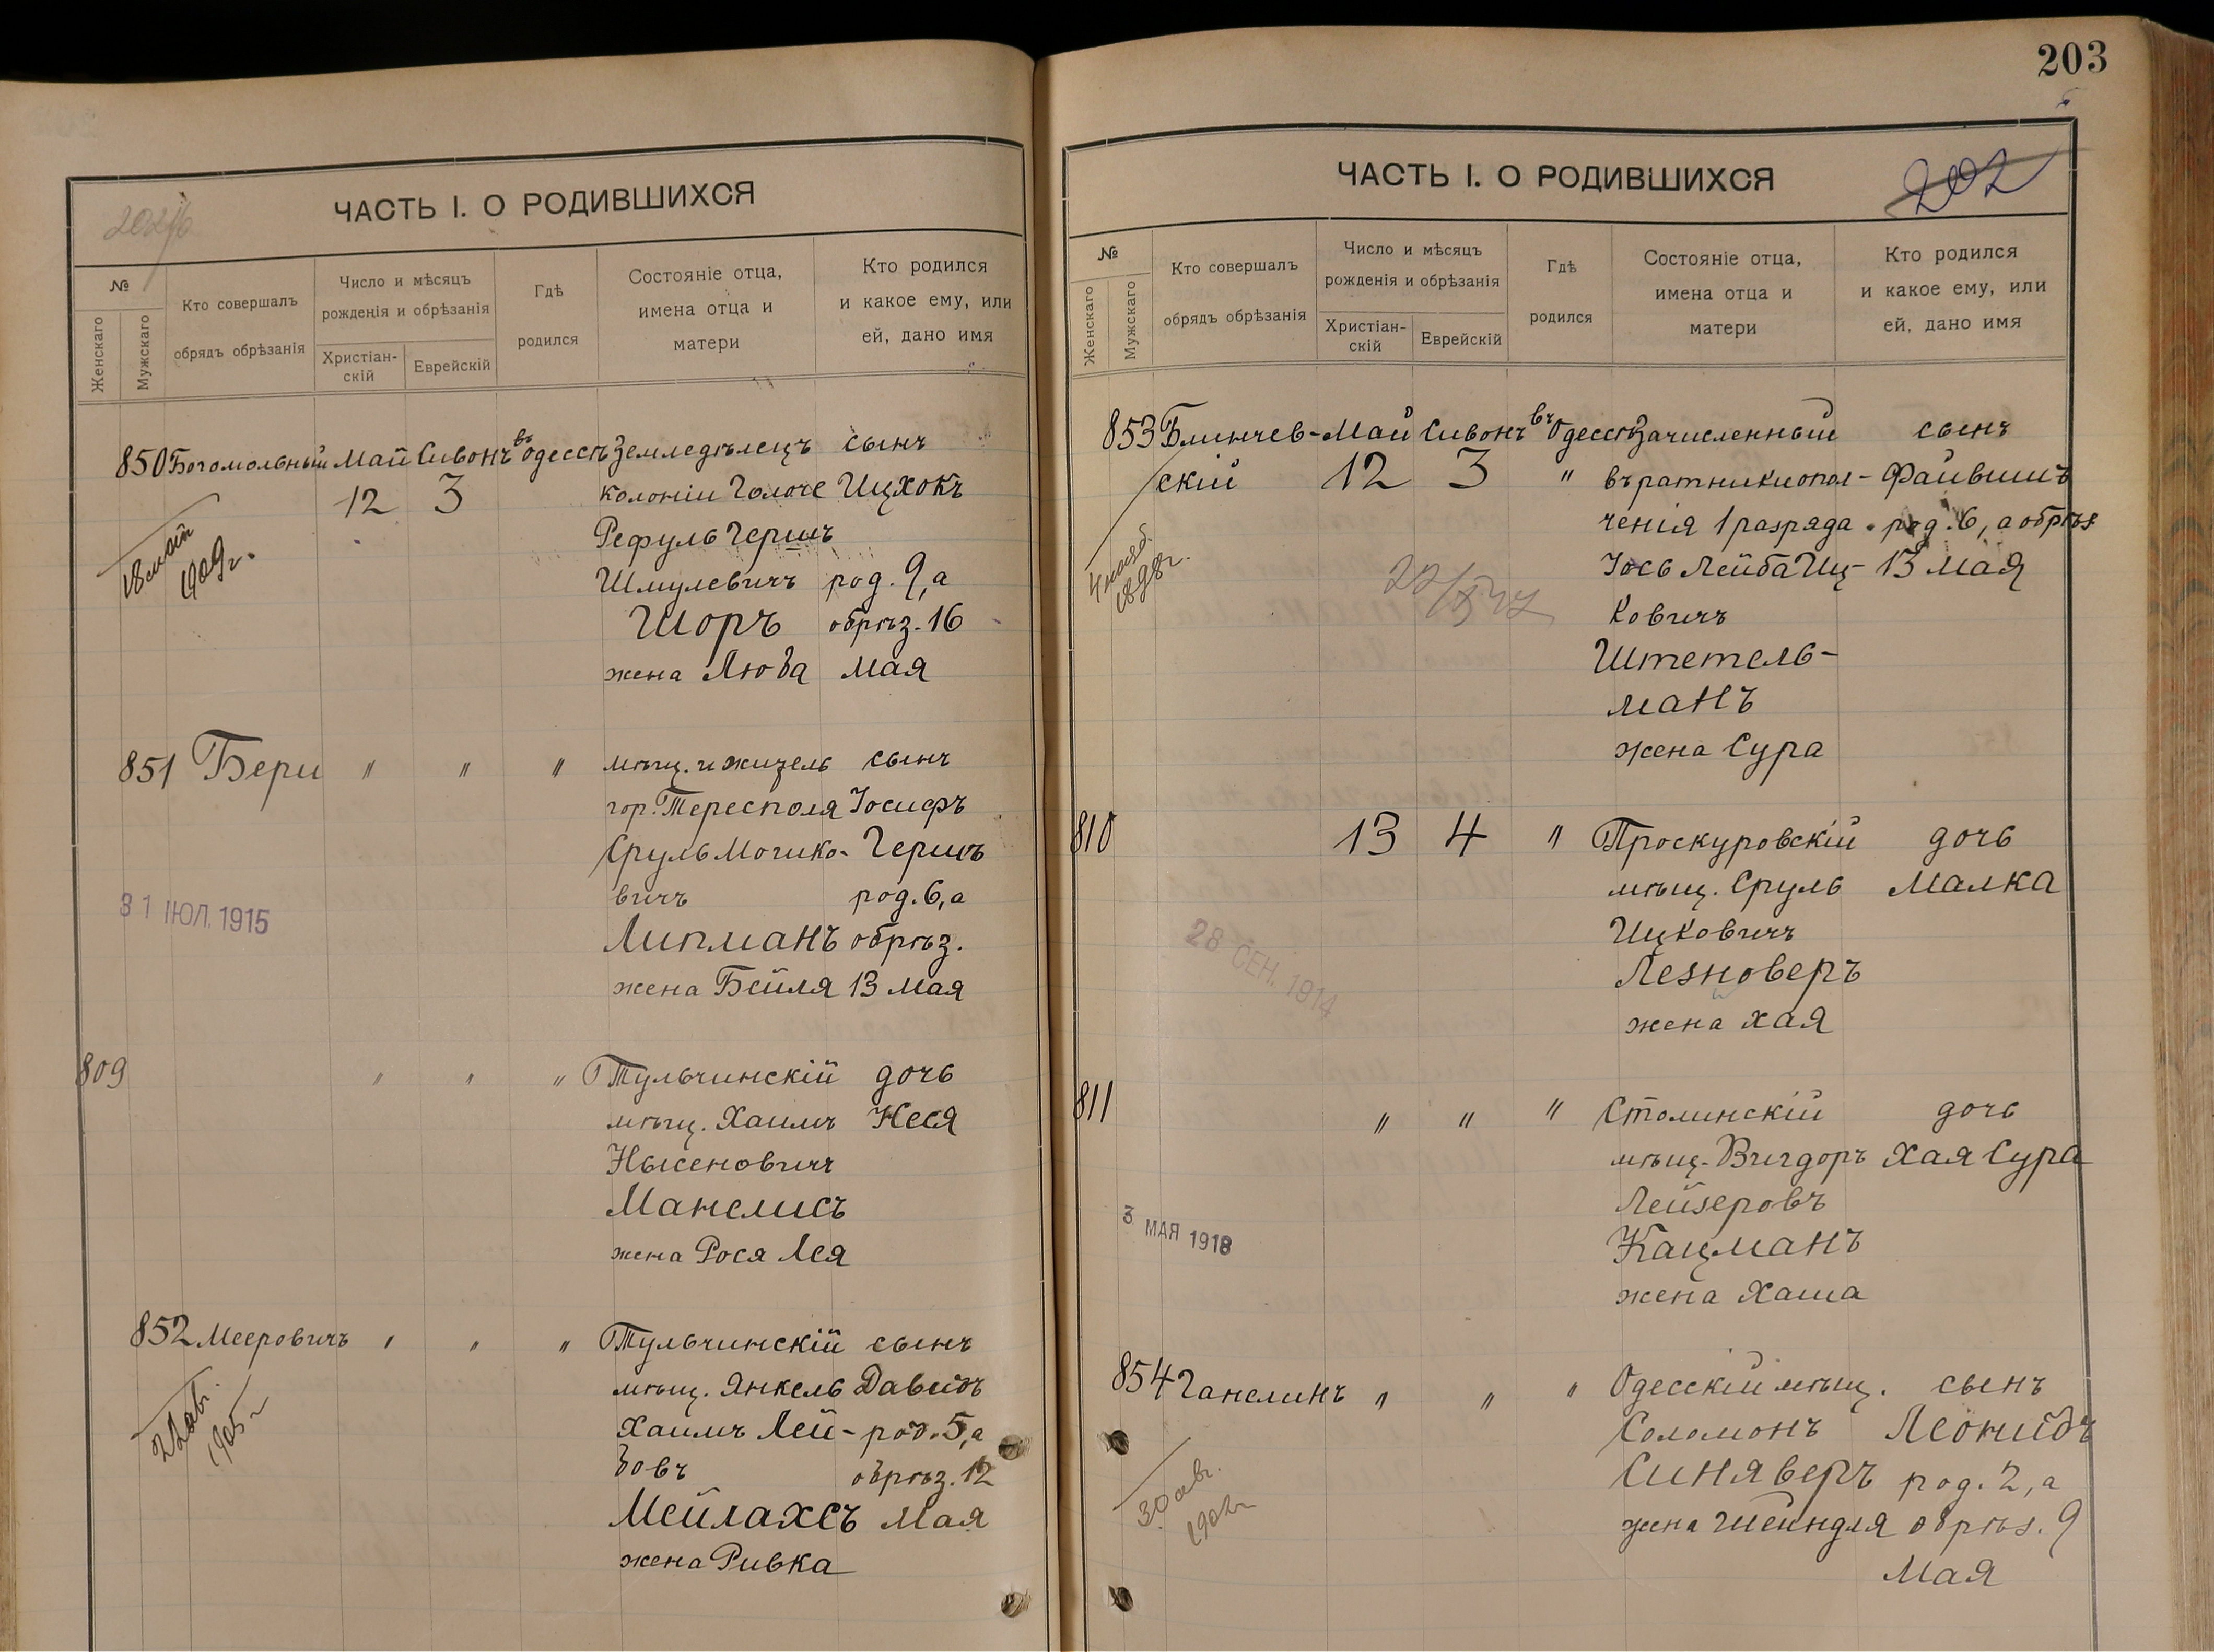 202 об
ЧАСТЬ I. О РОДИВШИХСЯ
№
Женскаго
Мужскаго
Кто совершалъ
обрядъ обрѣзанія
Число и мѣсяцъ
рожденія и обрѣзанія
Христіан-
скій
Еврейскій
Гдѣ
родился
Состояніе отца,
имена отца и
матери
Кто родился
и какое ему, или
ей, дано имя
850 Богомольный Май Сивонъ въ Одессѣ Земледѣлецъ сынъ
12 3 колоніи Голоче Ицхокъ
Рефулъ Гершъ
Шмулевичъ род. 9, а
Шоръ обрѣз. 16
жена Люба мая
1909 г.
851 Бери " " " мѣщ. и житель сынъ
гор. Тересполя Іосифъ
Сруль Мошко- Гершъ
вичъ род. 6, а
Липманъ обрѣз.
жена Бейля 13 мая
31 ІЮЛ. 1915
809 " " " Тульчинскій дочь
мѣщ. Хаимъ Неся
Нысеновичъ
Манелисъ
жена Рося Лея
852 Мееровичъ " " " Тульчинскій сынъ
мѣщ. Янкель Давидъ
Хаимъ Лей- род. 5, а
бовъ обрѣз. 12
Мейлахсъ мая
жена Ривка
22 авг.
1905 г
203
ЧАСТЬ I. О РОДИВШИХСЯ
202
№
Женскаго
Мужскаго
Кто совершалъ
обрядъ обрѣзанія
Число и мѣсяцъ
рожденія и обрѣзанія
Христіан-
скій
Еврейскій
Гдѣ
родился
Состояніе отца,
имена отца и
матери
Кто родился
и какое ему, или
ей, дано имя
853 Блинчев- Май Сивонъ въ Одессѣ Зачисленный сынъ
скій 12 3 " въ ратники опол- Файвишъ
ченія 1 разряда род. 6, а обрѣз
Іось Лейба Иц- 13 мая
ковичъ
Штетель-
манъ
жена Сура
4 нояб.
1898 г.
810 13 4 " Проскуровскій дочь
мѣщ. Сруль Малка
Ицковичъ
Лезноверъ
жена Хая
28 СЕН. 1914
811 " " " Столинскій дочь
мѣщ. Вигдоръ Хая Сура
Лейзеровъ
Кацманъ
жена Хаша
3 МАЯ 1918
854 Ганелинъ " " " Одесскій мѣщ. сынъ
Соломонъ Леонидъ
Синяверъ род. 2, а
жена Шейндля обрѣз. 9
Мая
30 авг.
1902 г